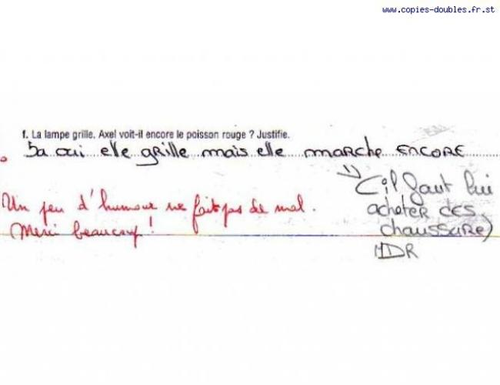 www.copies-doubles.fr.st
f. La lampe grille. Axel voit-il encore le poisson rouge ? Justifie.
Sa oui elle grille mais elle marche encore
=)
(il faut lui
acheter des
chaussure)
MDR
Un peu d'humour ne fait pas de mal.
Merci beaucoup !